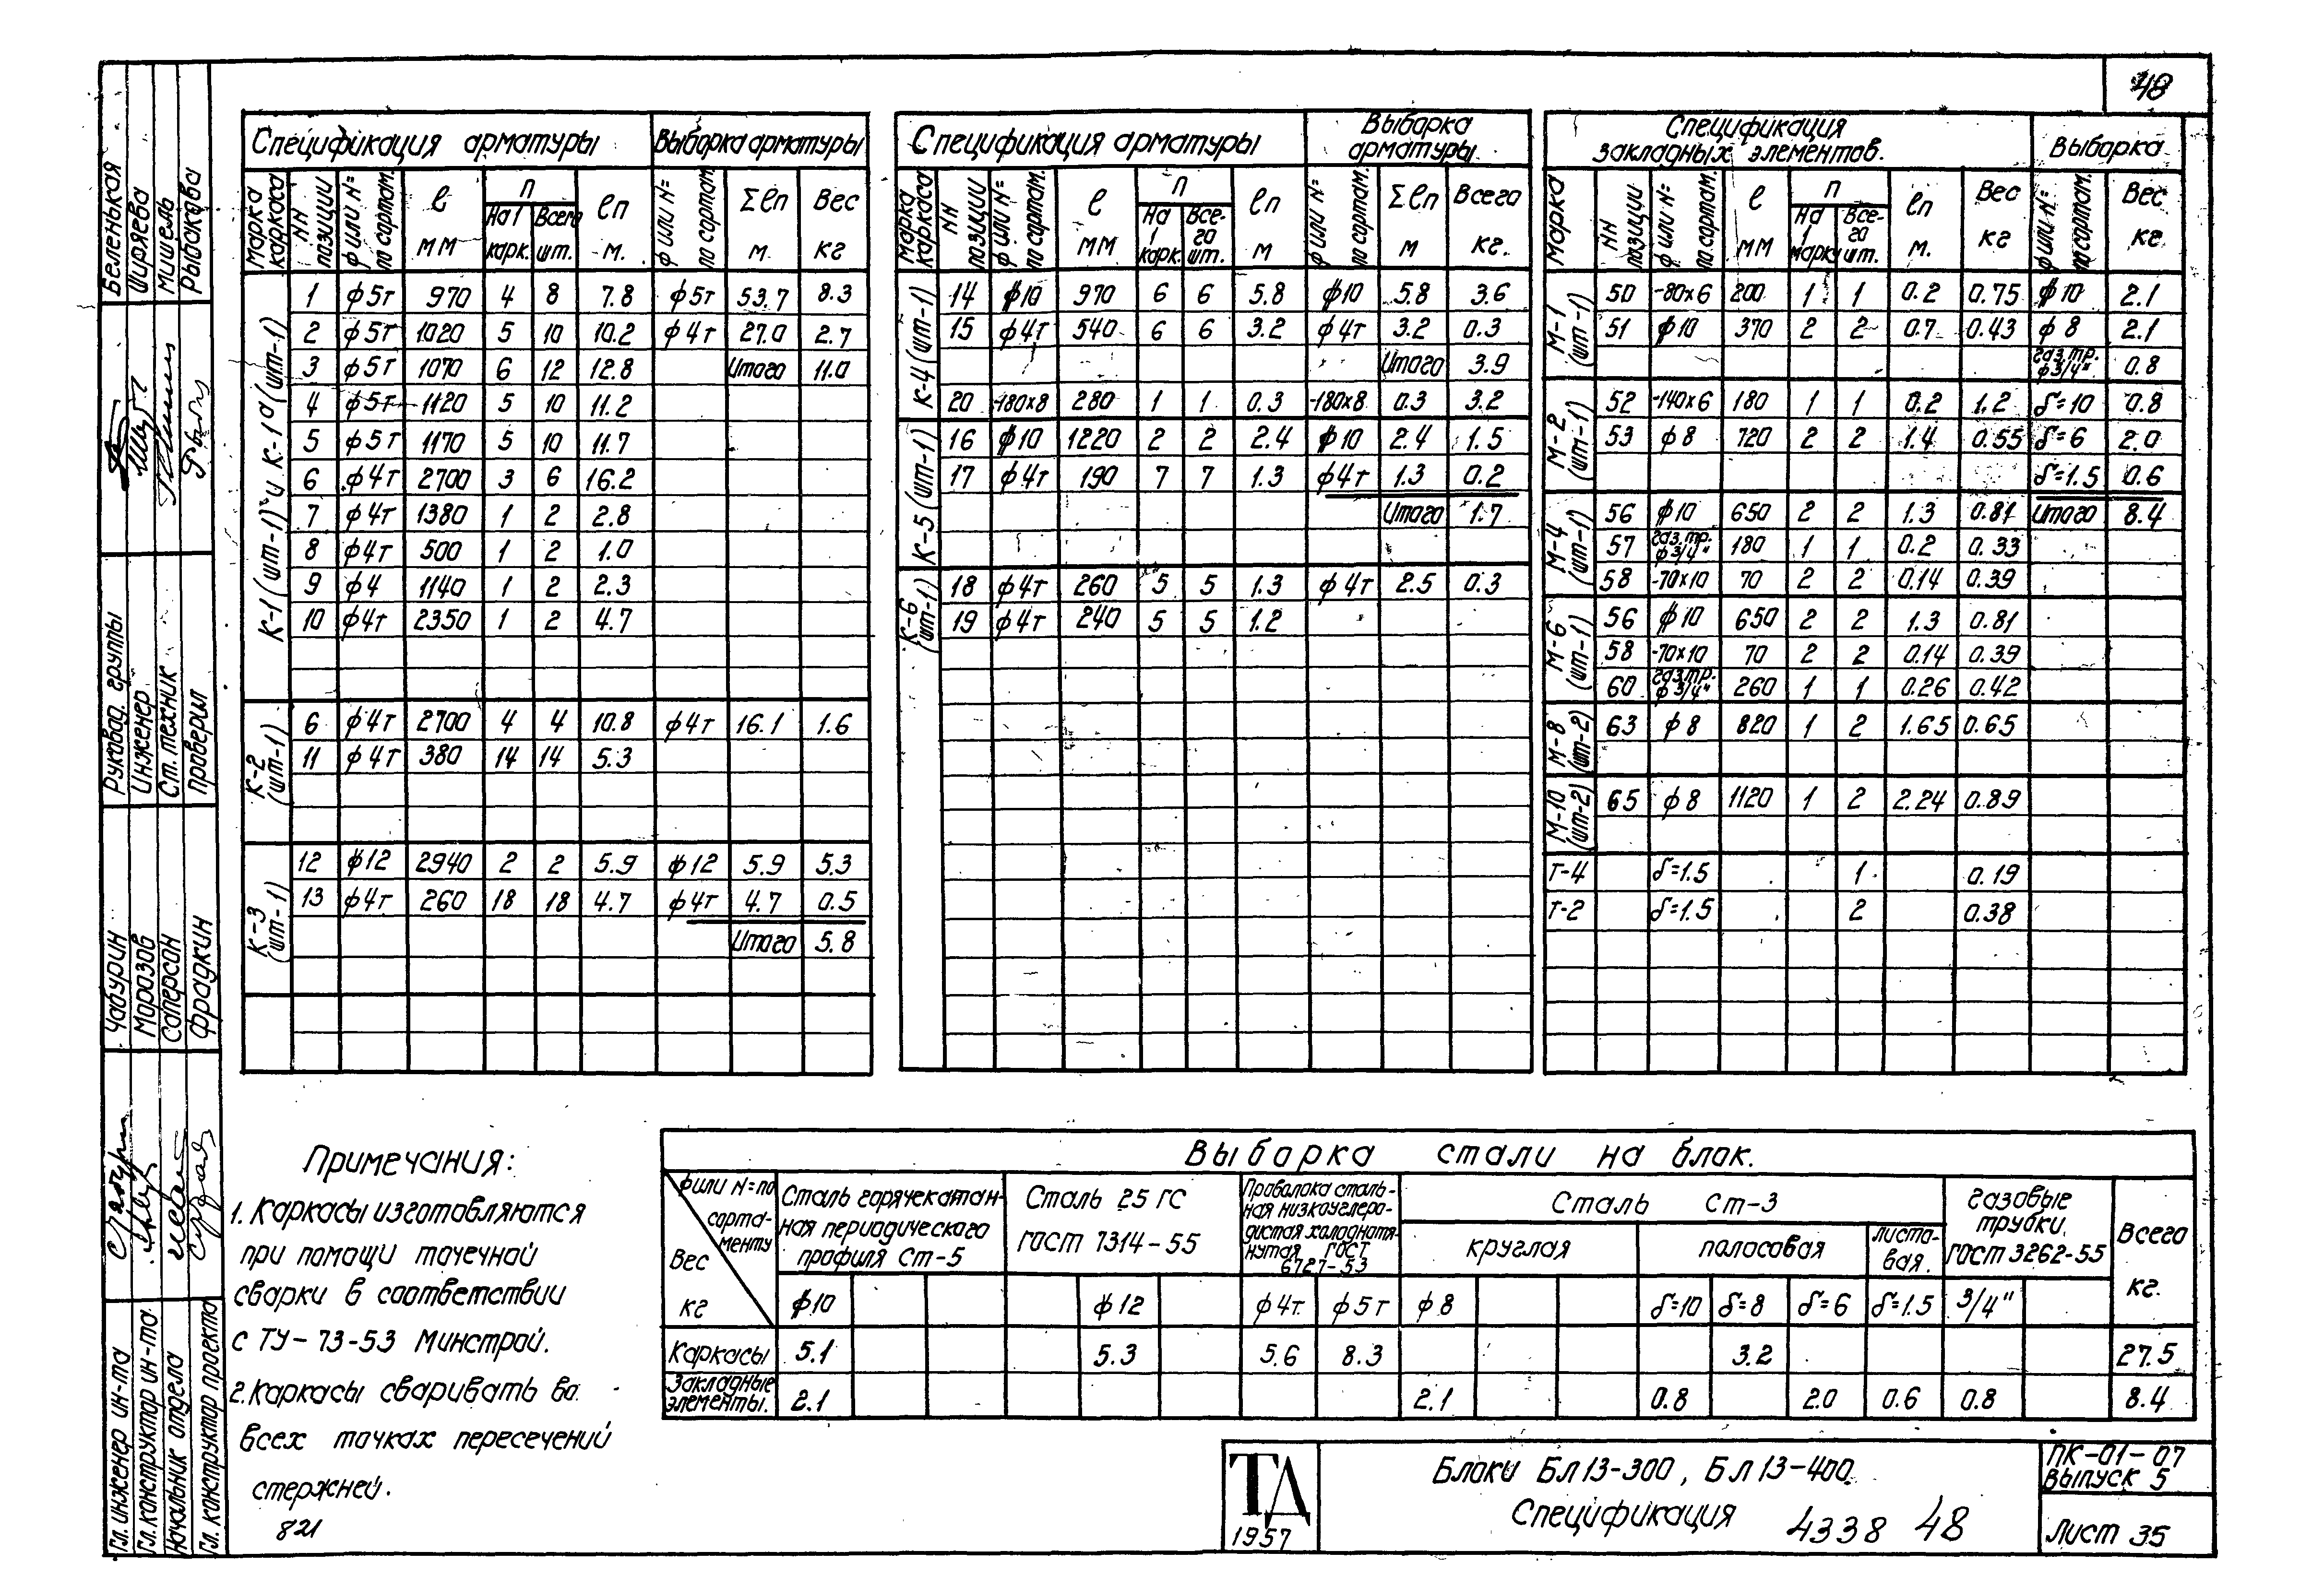 48
Спецификация арматуры | Выборка арматуры
Марка каркаса | NN позиции | ф или N= по сортам. | ℓ мм | п На 1 карк. | Всего шт. | ℓп м. | ф или N= по сортам. | Σℓп м | Вес кг
К-1 (шт-1) и К-1а (шт-1)
1 | ф5т | 970 | 4 | 8 | 7.8 | ф5т | 53.7 | 8.3
2 | ф5т | 1020 | 5 | 10 | 10.2 | ф4т | 27.0 | 2.7
3 | ф5т | 1070 | 6 | 12 | 12.8 | Итого | 11.0
4 | ф5т | 1120 | 5 | 10 | 11.2
5 | ф5т | 1170 | 5 | 10 | 11.7
6 | ф4т | 2700 | 3 | 6 | 16.2
7 | ф4т | 1380 | 1 | 2 | 2.8
8 | ф4т | 500 | 1 | 2 | 1.0
9 | ф4 | 1140 | 1 | 2 | 2.3
10 | ф4т | 2350 | 1 | 2 | 4.7
К-2 (шт-1)
6 | ф4т | 2700 | 4 | 4 | 10.8 | ф4т | 16.1 | 1.6
11 | ф4т | 380 | 14 | 14 | 5.3
К-3 (шт-1)
12 | ф12 | 2940 | 2 | 2 | 5.9 | ф12 | 5.9 | 5.3
13 | ф4т | 260 | 18 | 18 | 4.7 | ф4т | 4.7 | 0.5
Итого | 5.8
Спецификация арматуры | Выборка арматуры
Марка каркаса | NN позиции | ф или N= по сортам. | ℓ мм | п На 1 карк. | Все-го шт. | ℓп м | ф или N= по сортам. | Σℓп м | Всего кг.
К-4 (шт-1)
14 | ф10 | 970 | 6 | 6 | 5.8 | ф10 | 5.8 | 3.6
15 | ф4т | 540 | 6 | 6 | 3.2 | ф4т | 3.2 | 0.3
Итого | 3.9
20 | -180х8 | 280 | 1 | 1 | 0.3 | -180х8 | 0.3 | 3.2
К-5 (шт-1)
16 | ф10 | 1220 | 2 | 2 | 2.4 | ф10 | 2.4 | 1.5
17 | ф4т | 190 | 7 | 7 | 1.3 | ф4т | 1.3 | 0.2
Итого | 1.7
К-6 (шт-1)
18 | ф4т | 260 | 5 | 5 | 1.3 | ф4т | 2.5 | 0.3
19 | ф4т | 240 | 5 | 5 | 1.2
Спецификация закладных элементов. | Выборка
Марка | NN позиции | ф или N= по сортам. | ℓ мм | п На 1 марку | Все-го шт. | ℓп м. | Вес кг | ф или N= по сортам. | Вес кг.
М-1 (шт-1)
50 | -80х6 | 200 | 1 | 1 | 0.2 | 0.75 | ф10 | 2.1
51 | ф10 | 370 | 2 | 2 | 0.7 | 0.43 | ф8 | 2.1
газ.тр. ф3/4" | 0.8
М-2 (шт-1)
52 | -140х6 | 180 | 1 | 1 | 0.2 | 1.2 | δ=10 | 0.8
53 | ф8 | 720 | 2 | 2 | 1.4 | 0.55 | δ=6 | 2.0
δ=1.5 | 0.6
М-4 (шт-1)
56 | ф10 | 650 | 2 | 2 | 1.3 | 0.81 | Итого | 8.4
57 | газ.тр. ф3/4" | 180 | 1 | 1 | 0.2 | 0.33
58 | -70х10 | 70 | 2 | 2 | 0.14 | 0.39
М-6 (шт-1)
56 | ф10 | 650 | 2 | 2 | 1.3 | 0.81
58 | -70х10 | 70 | 2 | 2 | 0.14 | 0.39
60 | газ.тр. ф3/4" | 260 | 1 | 1 | 0.26 | 0.42
М-8 (шт-2)
63 | ф8 | 820 | 1 | 2 | 1.65 | 0.65
М-10 (шт-2)
65 | ф8 | 1120 | 1 | 2 | 2.24 | 0.89
Т-4 | δ=1.5 | 1 | 0.19
Т-2 | δ=1.5 | 2 | 0.38
Примечания:
1. Каркасы изготовляются
при помощи точечной
сварки в соответствии
с ТУ-73-53 Минстрой.
2. Каркасы сваривать во
всех точках пересечений
стержней.
821
Выборка стали на блок.
ф или N= по сортаменту | Вес кг | Сталь горячекатанная периодического профиля Ст-5 | Сталь 25 ГС ГОСТ 7314-55 | Проволока стальная низкоуглеродистая холоднотянутая ГОСТ 6727-53 | Сталь Ст-3 | круглая | полосовая | листовая. | Газовые трубки. ГОСТ 3262-55 | Всего кг.
ф10 | ф12 | ф4т. | ф5т | ф8 | δ=10 | δ=8 | δ=6 | δ=1.5 | 3/4"
Каркасы | 5.1 | 5.3 | 5.6 | 8.3 | 3.2 | 27.5
Закладные элементы. | 2.1 | 2.1 | 0.8 | 2.0 | 0.6 | 0.8 | 8.4
ТД
1957
Блоки Бл13-300, Бл13-400.
Спецификация
4338 48
ПК-01-07
выпуск 5
Лист 35
Беленькая
Ширяева
Мишель
Рыбакова
Руковод. группы
Инженер
Ст. техник
Проверил
Чабурин
Морозов
Сперсон
Фрадкин
Гл. инженер ин-та
Гл. конструктор ин-та
Начальник отдела
Гл. конструктор проекта